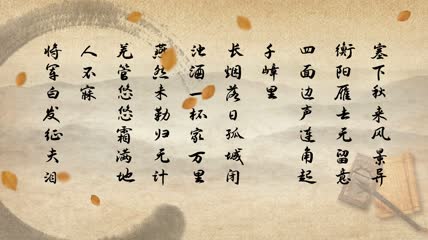 塞下秋来风景异
衡阳雁去无留意
四面边声连角起
千嶂里
长烟落日孤城闭
浊酒一杯家万里
燕然未勒归无计
羌管悠悠霜满地
人不寐
将军白发征夫泪